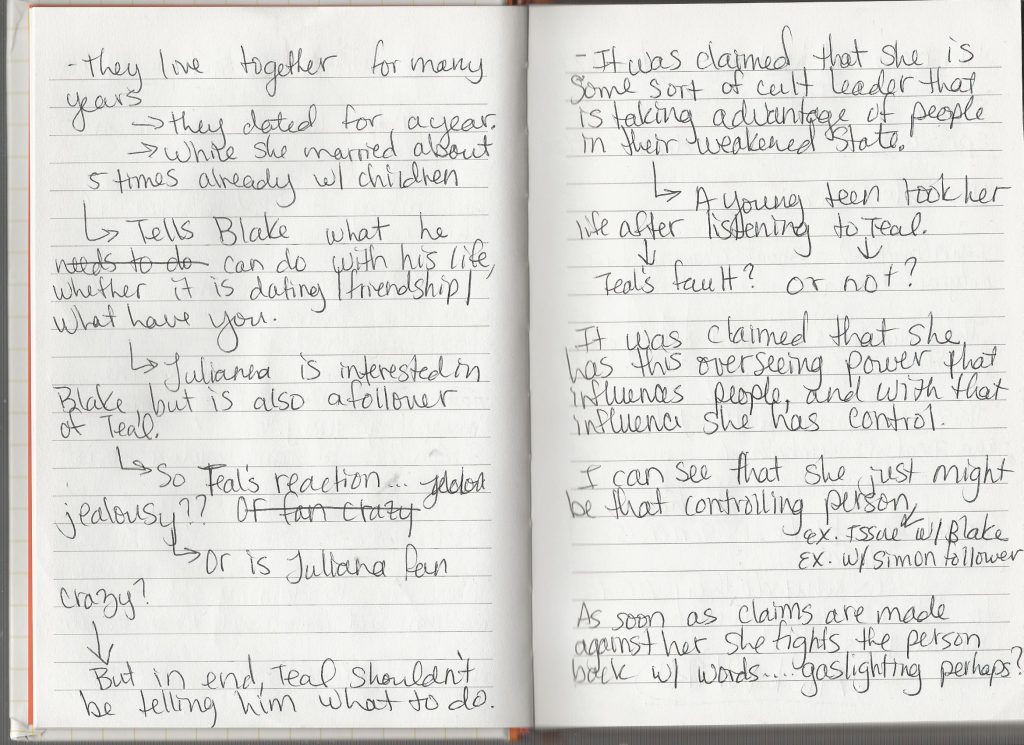 - They live together for many
years
→ they dated for a year.
→ While she married about
5 times already w/ children
↳ Tells Blake what he
needs to do can do with his life,
whether it is dating/friendship/
what have you.
↳ Julianna is interested in
Blake, but is also a follower
of Teal.
↳ So Teal's reaction...
jealousy?? Of fan crazy
↳ Or is Juliana fan
crazy?
↓
But in end, Teal shouldn't
be telling him what to do.
- It was claimed that she is
some sort of cult leader that
is taking advantage of people
in their weakened state.
↳ A young teen took her
life after listening to Teal.
↓ ↓
Teal's fault? or not?
It was claimed that she
has this overseeing power that
influences people, and with that
influence she has control.
I can see that she just might
be that controlling person,
ex. Issue w/ Blake
Ex. w/ Simon follower
As soon as claims are made
against her she fights the person
back w/ words.... gaslighting perhaps?